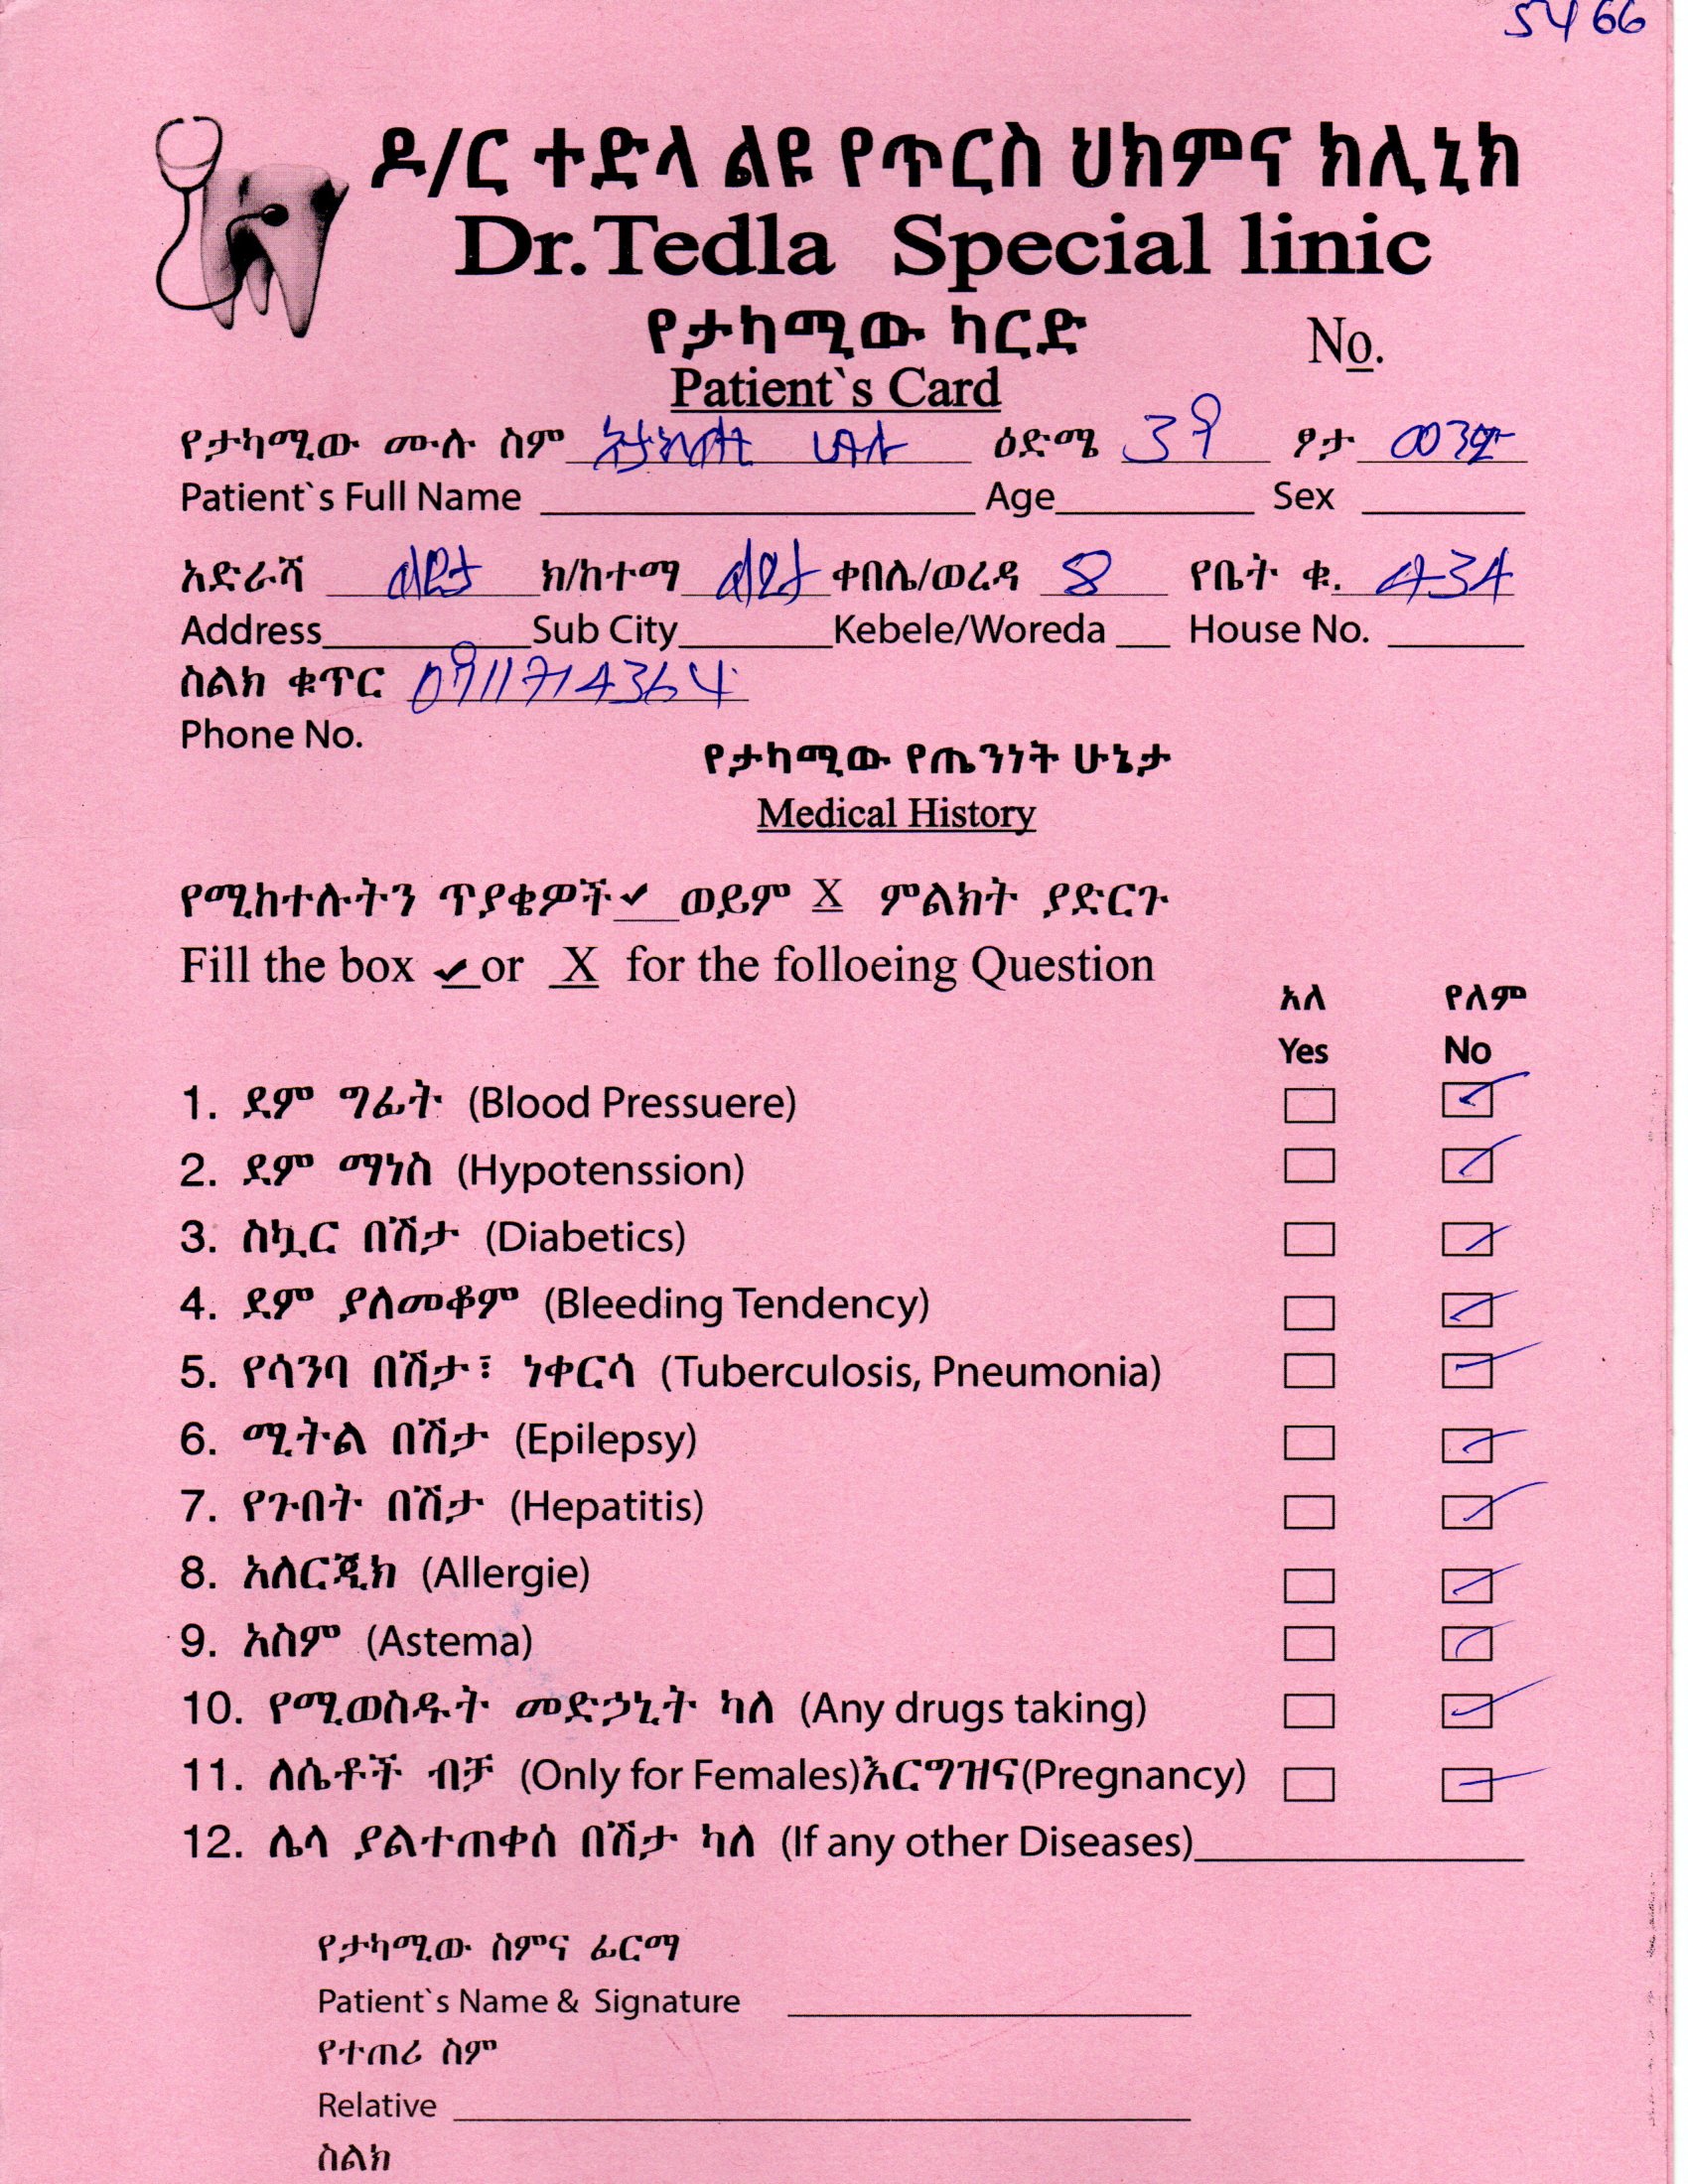 5466
ዶ/ር ተድላ ልዩ የጥርስ ህክምና ክሊኒክ
Dr.Tedla Special linic
የታካሚው ካርድ
No.
Patient`s Card
የታካሚው ሙሉ ስም ዕድሜ 39 ፆታ ወንድ
Patient`s Full Name Age Sex
አድራሻ ልደታ ክ/ከተማ ልደታ ቀበሌ/ወረዳ 8 የቤት ቁ. 434
Address Sub City Kebele/Woreda House No.
ስልክ ቁጥር 0911714364
Phone No.
የታካሚው የጤንነት ሁኔታ
Medical History
የሚከተሉትን ጥያቄዎች ✓ ወይም X ምልክት ያድርጉ
Fill the box ✓ or X for the folloeing Question
አለ የለም
Yes No
1. ደም ግፊት (Blood Pressuere) ✓
2. ደም ማነስ (Hypotenssion) ✓
3. ስኳር በሽታ (Diabetics) ✓
4. ደም ያለመቆም (Bleeding Tendency) ✓
5. የሳንባ በሽታ፣ ነቀርሳ (Tuberculosis, Pneumonia) ✓
6. ሚትል በሽታ (Epilepsy) ✓
7. የጉበት በሽታ (Hepatitis) ✓
8. አለርጂክ (Allergie) ✓
9. አስም (Astema) ✓
10. የሚወስዱት መድኃኒት ካለ (Any drugs taking) ✓
11. ለሴቶች ብቻ (Only for Females)እርግዝና(Pregnancy) ✓
12. ሌላ ያልተጠቀሰ በሽታ ካለ (If any other Diseases)
የታካሚው ስምና ፊርማ
Patient`s Name & Signature
የተጠሪ ስም
Relative
ስልክ